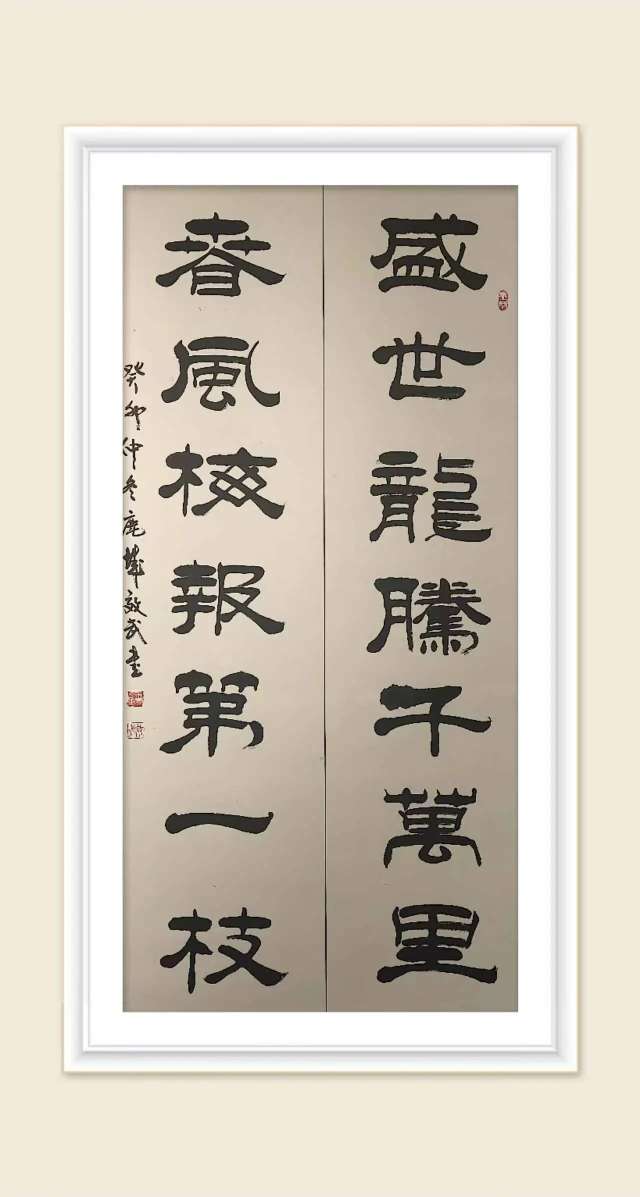 盛世龍騰千萬里
春風梅報第一枝
癸卯仲冬鹿城效武書